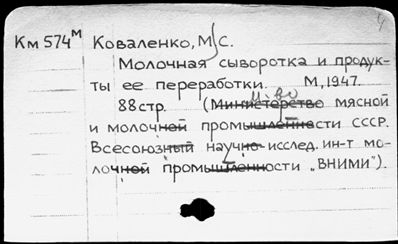 4
Км 574м Коваленко, М.С.
Молочная сыворотка и продук-
ты ее переработки. М, 1947.
88 стр. (Министерство мясной
и молочной промышленности СССР.
Всесоюзный научно-исслед. ин-т мо-
лочной промышленности „ВНИМИ").